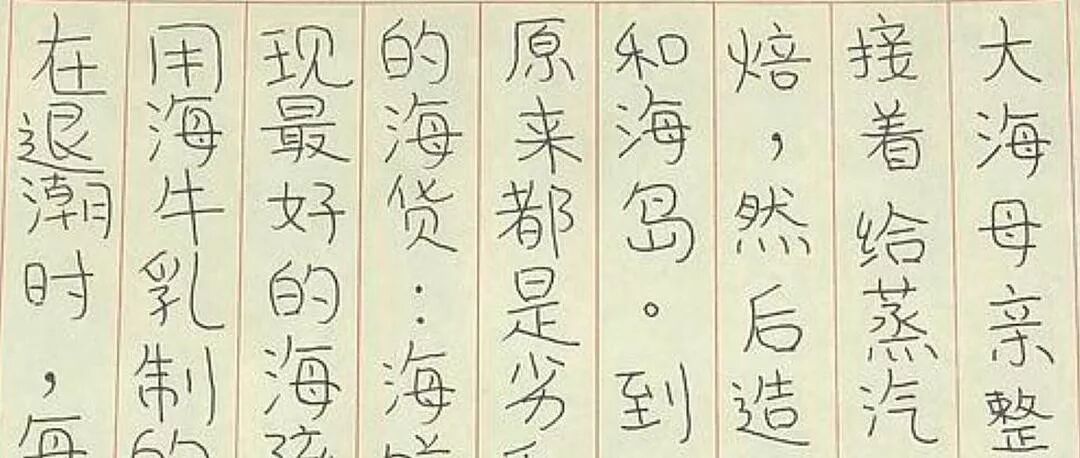 大海母亲整
接着给蒸汽
焙，然后造
和海岛。到
原来都是劣
的海货…海
现最好的海
用海牛乳制的
在退潮时，每